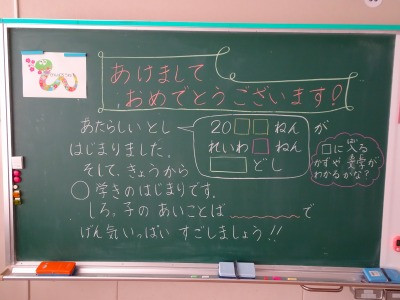 あけまして
おめでとうございます!
あたらしい とし
20□□ねん が
れいわ□ねん
□どし
はじまりました。
そして、きょうから
○学きのはじまりです。
しろ子の あいことば 〰〰 で
げん気いっぱい すごしましょう!!
□に入る
かずや 漢字が
わかるかな?